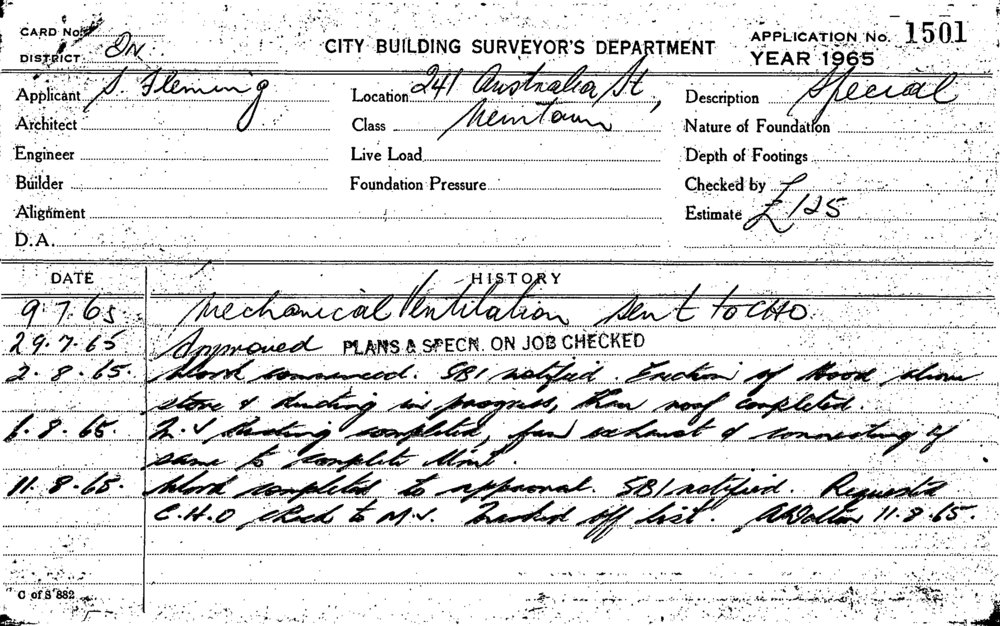 CARD No.
DISTRICT
CITY BUILDING SURVEYOR'S DEPARTMENT
APPLICATION No. 1501
YEAR 1965
Applicant S. Fleming
Location 241 Australia St,
Description Special
Architect
Class Newtown
Nature of Foundation
Engineer
Live Load
Depth of Footings
Builder
Foundation Pressure
Checked by
Alignment
Estimate £125
D.A.
DATE HISTORY
9.7.65 Mechanical Ventilation sent to CHO
29.7.65 Approved PLANS & SPECN. ON JOB CHECKED
2.8.65. Work commenced. SBI notified. Erection of Hood above
stove & ducting in progress, thru roof completed.
6.8.65. ducting completed, fan exhaust & connecting of
same to complete
11.8.65. Work completed to approval. SBI notified. Requests
C.H.O check to M.V. off list. 11.8.65.
C of S 882